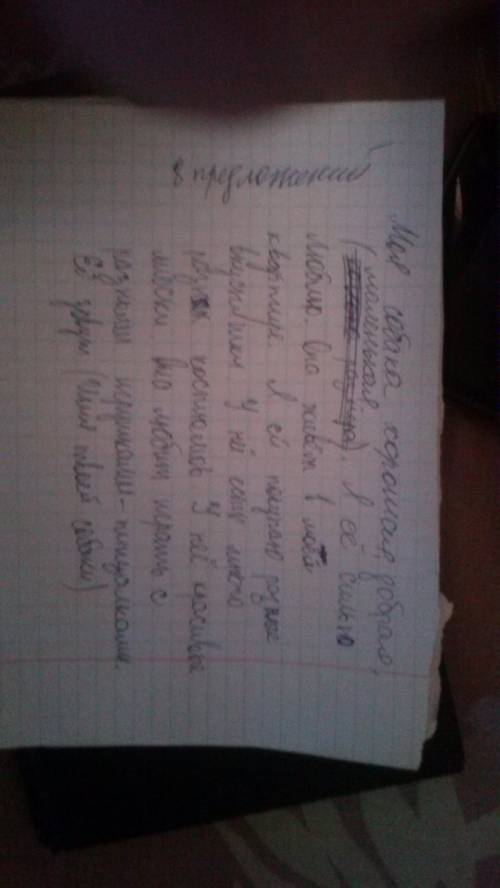 8 предложений
Моя собака хорошая, добрая,
(маленькая. Я её сильно
люблю. Она живёт в моей
квартире. Я ей покупаю разные
вкусняшки. У неё есть много
разных костюмов. У неё красивые
она любит играть с
разными игрушками-пищалками.
Её зовут (Имя твоей собаки)